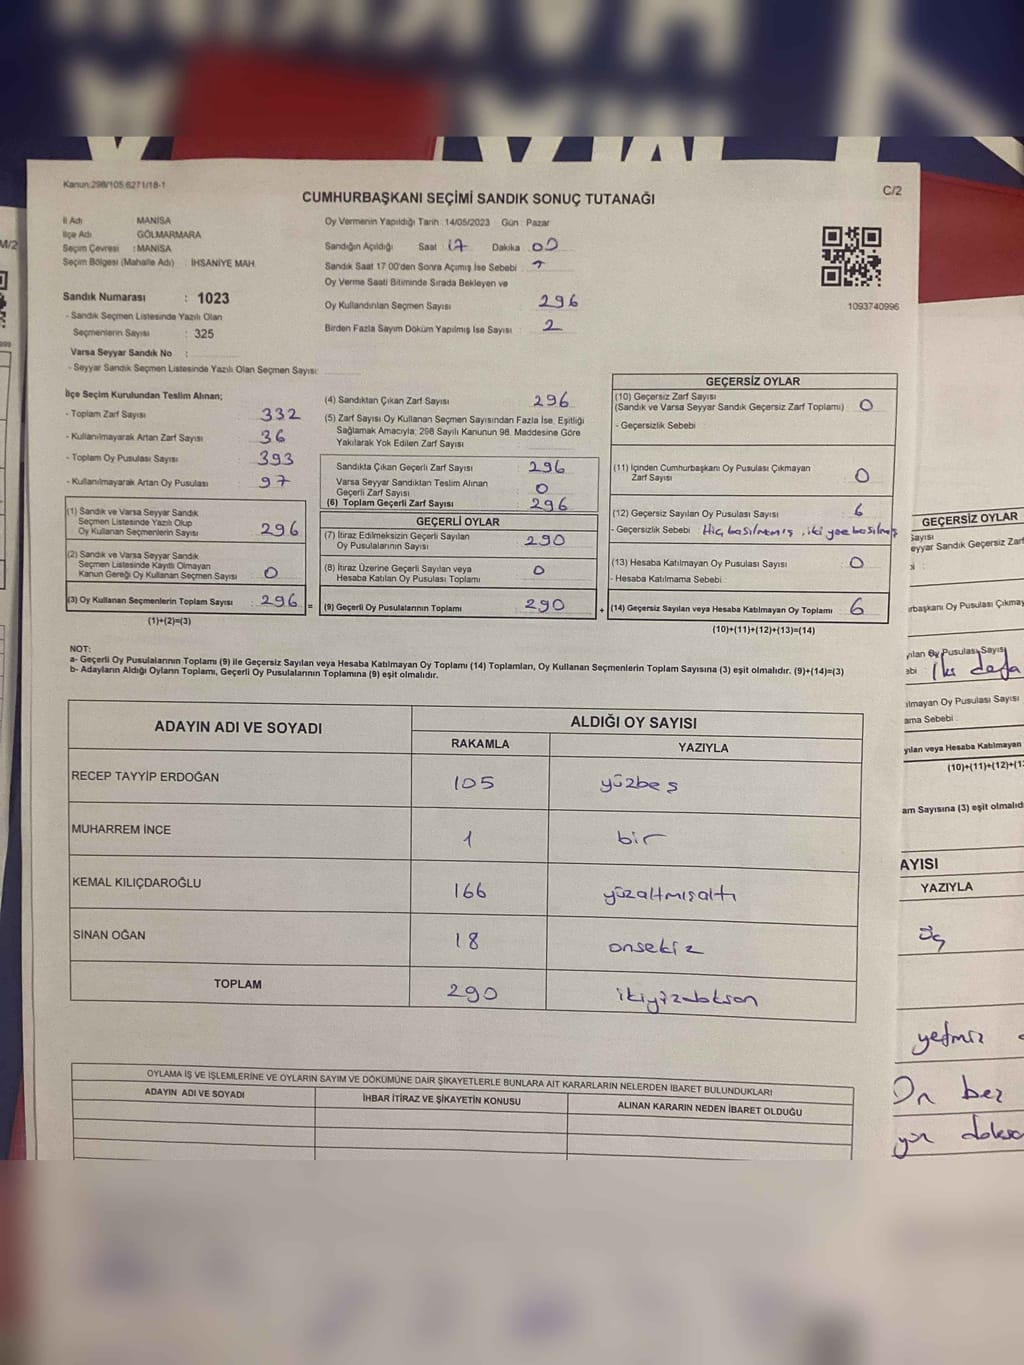 Kanun:298/105,6271/18-1
C/2
CUMHURBAŞKANI SEÇİMİ SANDIK SONUÇ TUTANAĞI
İl Adı MANİSA
İlçe Adı GÖLMARMARA
Seçim Çevresi : MANİSA
Seçim Bölgesi (Mahalle Adı) : İHSANİYE MAH.
Sandık Numarası : 1023
- Sandık Seçmen Listesinde Yazılı Olan
Seçmenlerin Sayısı : 325
Varsa Seyyar Sandık No :
- Seyyar Sandık Seçmen Listesinde Yazılı Olan Seçmen Sayısı:
Oy Vermenin Yapıldığı Tarih : 14/05/2023 Gün : Pazar
Sandığın Açıldığı Saat 17 Dakika 00
Sandık Saat 17:00'den Sonra Açımış İse Sebebi :
Oy Verme Saati Bitiminde Sırada Bekleyen ve
Oy Kullandırılan Seçmen Sayısı 296
Birden Fazla Sayım Döküm Yapılmış İse Sayısı : 2
1093740996
İlçe Seçim Kurulundan Teslim Alınan;
- Toplam Zarf Sayısı 332
- Kullanılmayarak Artan Zarf Sayısı 36
- Toplam Oy Pusulası Sayısı 393
- Kullanılmayarak Artan Oy Pusulası 97
(1) Sandık ve Varsa Seyyar Sandık
Seçmen Listesinde Yazılı Olup
Oy Kullanan Seçmenlerin Sayısı 296
(2) Sandık ve Varsa Seyyar Sandık
Seçmen Listesinde Kayıtlı Olmayan
Kanun Gereği Oy Kullanan Seçmen Sayısı 0
(3) Oy Kullanan Seçmenlerin Toplam Sayısı 296 =
(1)+(2)=(3)
(4) Sandıktan Çıkan Zarf Sayısı 296
(5) Zarf Sayısı Oy Kullanan Seçmen Sayısından Fazla İse, Eşitliği
Sağlamak Amacıyla; 298 Sayılı Kanunun 98. Maddesine Göre
Yakılarak Yok Edilen Zarf Sayısı
Sandıkta Çıkan Geçerli Zarf Sayısı 296
Varsa Seyyar Sandıktan Teslim Alınan
Geçerli Zarf Sayısı 0
(6) Toplam Geçerli Zarf Sayısı 296
GEÇERLİ OYLAR
(7) İtiraz Edilmeksizin Geçerli Sayılan
Oy Pusulalarının Sayısı 290
(8) İtiraz Üzerine Geçerli Sayılan veya
Hesaba Katılan Oy Pusulası Toplamı 0
(9) Geçerli Oy Pusulalarının Toplamı 290 +
GEÇERSİZ OYLAR
(10) Geçersiz Zarf Sayısı
(Sandık ve Varsa Seyyar Sandık Geçersiz Zarf Toplamı) 0
- Geçersizlik Sebebi :
(11) İçinden Cumhurbaşkanı Oy Pusulası Çıkmayan
Zarf Sayısı 0
(12) Geçersiz Sayılan Oy Pusulası Sayısı 6
- Geçersizlik Sebebi : Hiç basılmamış, iki yere basılmış
(13) Hesaba Katılmayan Oy Pusulası Sayısı 0
- Hesaba Katılmama Sebebi :
(14) Geçersiz Sayılan veya Hesaba Katılmayan Oy Toplamı 6
(10)+(11)+(12)+(13)=(14)
NOT:
a- Geçerli Oy Pusulalarının Toplamı (9) ile Geçersiz Sayılan veya Hesaba Katılmayan Oy Toplamı (14) Toplamları, Oy Kullanan Seçmenlerin Toplam Sayısına (3) eşit olmalıdır. (9)+(14)=(3)
b- Adayların Aldığı Oyların Toplamı, Geçerli Oy Pusulalarının Toplamına (9) eşit olmalıdır.
ADAYIN ADI VE SOYADI ALDIĞI OY SAYISI
RAKAMLA YAZIYLA
RECEP TAYYİP ERDOĞAN 105 yüzbeş
MUHARREM İNCE 1 bir
KEMAL KILIÇDAROĞLU 166 yüzaltmışaltı
SİNAN OĞAN 18 onsekiz
TOPLAM 290 ikiyüzdoksan
OYLAMA İŞ VE İŞLEMLERİNE VE OYLARIN SAYIM VE DÖKÜMÜNE DAİR ŞİKAYETLERLE BUNLARA AİT KARARLARIN NELERDEN İBARET BULUNDUKLARI
ADAYIN ADI VE SOYADI İHBAR İTİRAZ VE ŞİKAYETİN KONUSU ALINAN KARARIN NEDEN İBARET OLDUĞU
M/2
GEÇERSİZ OYLAR
Sayısı
eyyar Sandık Geçersiz Zarf
rbaşkanı Oy Pusulası Çıkmay
yılan Oy Pusulası Sayısı
ebi : İki defa
ılmayan Oy Pusulası Sayısı
ama Sebebi :
yılan veya Hesaba Katılmayan
(10)+(11)+(12)+(1
am Sayısına (3) eşit olmalıd
AYISI
YAZIYLA
Üç
yetmiş
On beş
yüz doksa